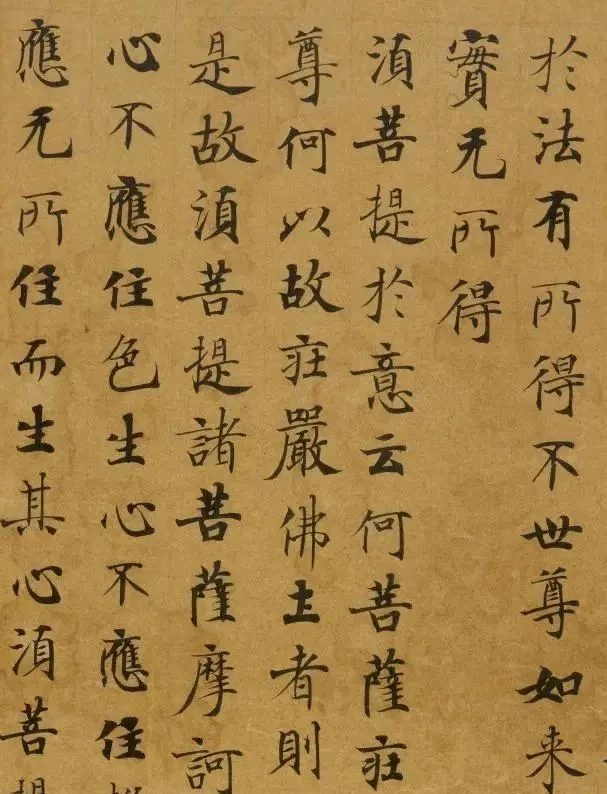 於法有所得不世尊如来
實无所得
須菩提於意云何菩薩莊
尊何以故莊嚴佛土者則
是故須菩提諸菩薩摩訶
心不應住色生心不應住
應无所住而生其心須菩提